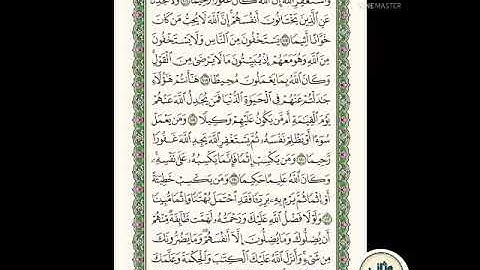 وَاسْتَغْفِرِ اللَّهَ إِنَّ اللَّهَ كَانَ غَفُورًا رَحِيمًا وَلَا تُجَادِلْ
عَنِ الَّذِينَ يَخْتَانُونَ أَنْفُسَهُمْ إِنَّ اللَّهَ لَا يُحِبُّ مَنْ كَانَ
خَوَّانًا أَثِيمًا يَسْتَخْفُونَ مِنَ النَّاسِ وَلَا يَسْتَخْفُونَ
مِنَ اللَّهِ وَهُوَ مَعَهُمْ إِذْ يُبَيِّتُونَ مَا لَا يَرْضَىٰ مِنَ الْقَوْلِ
وَكَانَ اللَّهُ بِمَا يَعْمَلُونَ مُحِيطًا هَا أَنْتُمْ هَٰؤُلَاءِ
جَادَلْتُمْ عَنْهُمْ فِي الْحَيَاةِ الدُّنْيَا فَمَنْ يُجَادِلُ اللَّهَ عَنْهُمْ
يَوْمَ الْقِيَامَةِ أَمْ مَنْ يَكُونُ عَلَيْهِمْ وَكِيلًا وَمَنْ يَعْمَلْ
سُوءًا أَوْ يَظْلِمْ نَفْسَهُ ثُمَّ يَسْتَغْفِرِ اللَّهَ يَجِدِ اللَّهَ غَفُورًا
رَحِيمًا وَمَنْ يَكْسِبْ إِثْمًا فَإِنَّمَا يَكْسِبُهُ عَلَىٰ نَفْسِهِ
وَكَانَ اللَّهُ عَلِيمًا حَكِيمًا وَمَنْ يَكْسِبْ خَطِيئَةً
أَوْ إِثْمًا ثُمَّ يَرْمِ بِهِ بَرِيئًا فَقَدِ احْتَمَلَ بُهْتَانًا وَإِثْمًا مُبِينًا
وَلَوْلَا فَضْلُ اللَّهِ عَلَيْكَ وَرَحْمَتُهُ لَهَمَّتْ طَائِفَةٌ مِنْهُمْ
أَنْ يُضِلُّوكَ وَمَا يُضِلُّونَ إِلَّا أَنْفُسَهُمْ وَمَا يَضُرُّونَكَ
مِنْ شَيْءٍ وَأَنْزَلَ اللَّهُ عَلَيْكَ الْكِتَابَ وَالْحِكْمَةَ وَعَلَّمَكَ